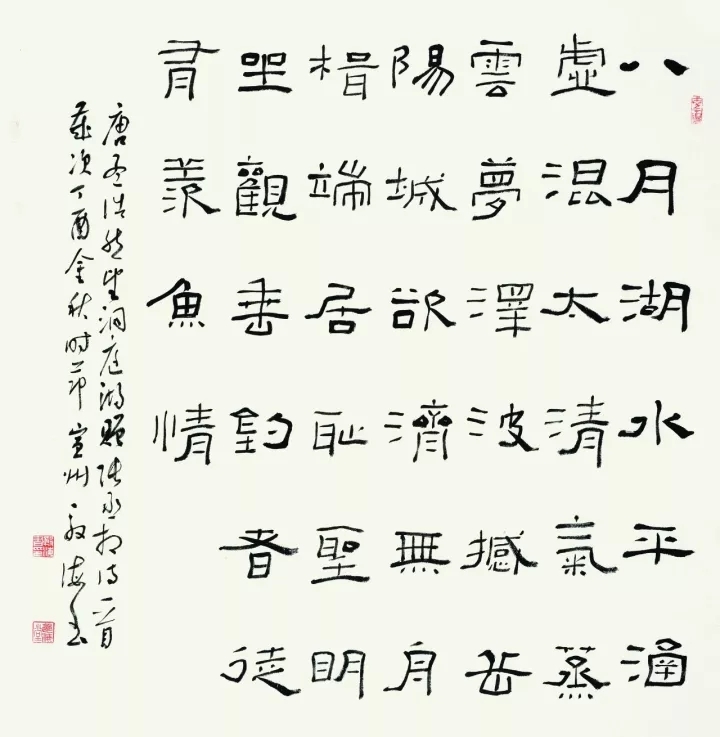 八月湖水平涵
虚混太清氣蒸
雲夢澤波撼岳
陽城欲濟無舟
楫端居耻聖明
坐觀垂釣者徒
有羨魚情
唐孟浩然望洞庭湖贈張丞相詩一首
歲次丁酉金秋時節宣州海書